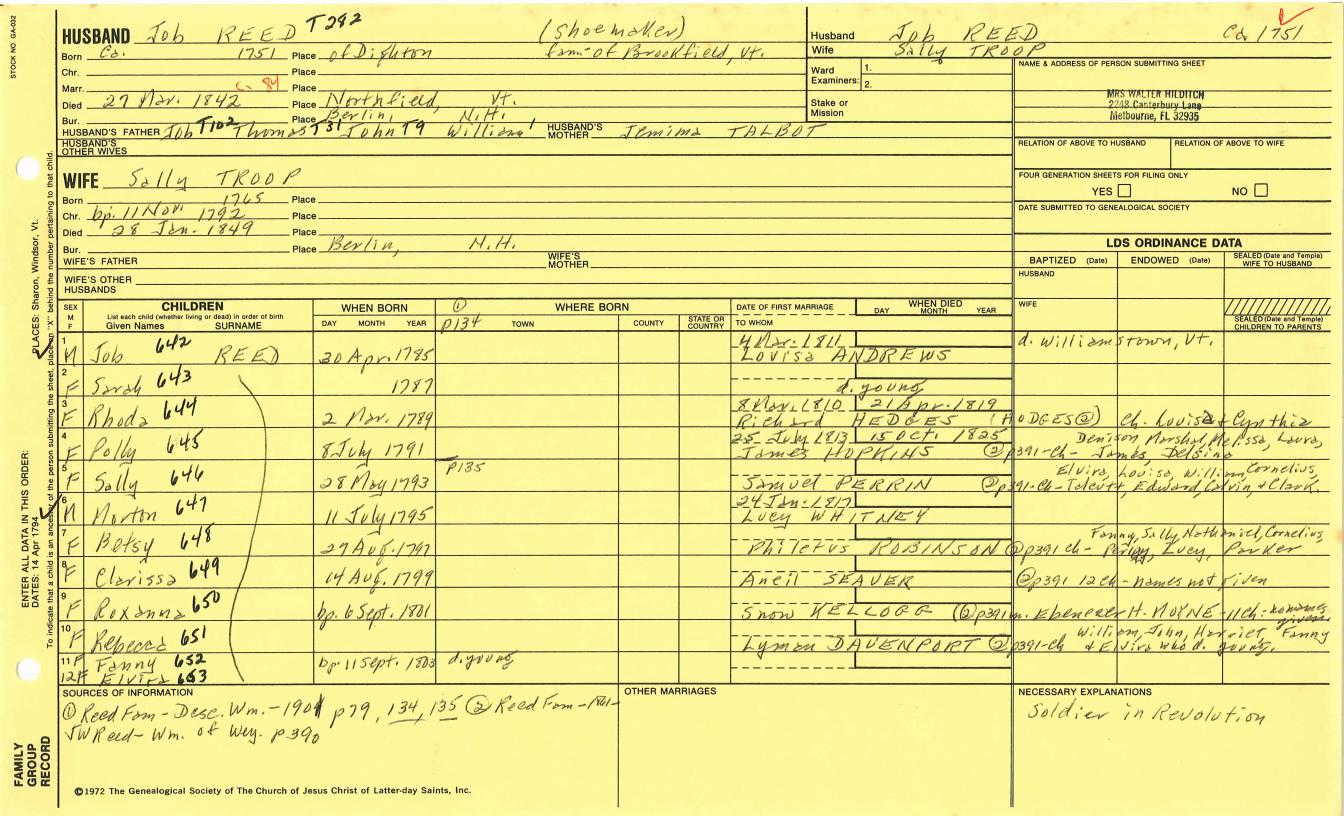 STOCK NO. GA-032
HUSBAND Job REED T292 (Shoemaker)
Born Ca. 1751 Place of Dighton fam. of Brookfield, Vt.
Chr. Place
Marr. c. 84 Place
Died 27 Mar. 1842 Place Northfield, Vt.
Bur. Place Berlin, N.H.
HUSBAND'S FATHER Job T102 Thomas T31 John T9 William1 HUSBAND'S MOTHER Jemima TALBOT
HUSBAND'S OTHER WIVES
WIFE Sally TROOP
Born 1765 Place
Chr. bp. 11 Nov. 1792 Place
Died 28 Jan. 1849 Place
Bur. Place Berlin, N.H.
WIFE'S FATHER WIFE'S MOTHER
WIFE'S OTHER HUSBANDS
Husband Job REED Ca. 1751
Wife Sally TROOP
Ward Examiners: 1. 2.
Stake or Mission
NAME & ADDRESS OF PERSON SUBMITTING SHEET
MRS WALTER HILDITCH
2248 Canterbury Lane
Melbourne, FL 32935
RELATION OF ABOVE TO HUSBAND RELATION OF ABOVE TO WIFE
FOUR GENERATION SHEETS FOR FILING ONLY
YES NO
DATE SUBMITTED TO GENEALOGICAL SOCIETY
LDS ORDINANCE DATA
BAPTIZED (Date) ENDOWED (Date) SEALED (Date and Temple) WIFE TO HUSBAND
HUSBAND
WIFE
SEALED (Date and Temple) CHILDREN TO PARENTS
SEX M F CHILDREN List each child (whether living or dead) in order of birth Given Names SURNAME
WHEN BORN DAY MONTH YEAR
① p134 WHERE BORN TOWN COUNTY STATE OR COUNTRY
DATE OF FIRST MARRIAGE TO WHOM
WHEN DIED DAY MONTH YEAR
1 M Job 642 REED 30 Apr. 1785 4 Mar. 1811 Lovisa ANDREWS d. Williamstown, Vt.
2 F Sarah 643 1787 d. young
3 F Rhoda 644 2 Mar. 1789 8 Mar. 1810 21 Apr. 1819 Richard HEDGES (HODGES②) Ch. Louisa + Cynthia
4 F Polly 645 8 July 1791 25 July 1813 15 Oct. 1825 James HOPKINS ②p391-Ch- James, Delsina Denison, Marshal, Melissa, Laura,
5 F Sally 646 28 May 1793 p135 Samuel PERRIN ②p391-Ch- Tolcutt, Edward, Calvin, & Clark Elvira, Louisa, William, Cornelius,
6 M Morton 647 11 July 1795 24 Jan. 1817 Lucy WHITNEY
7 F Betsy 648 27 Aug. 1797 Philetus ROBINSON ②p391 ch- Lucy, Parker Fanny, Sally, Nathaniel, Cornelius,
8 F Clarissa 649 14 Aug. 1799 Ancil SEAVER ②p391 12ch- names not given
9 F Roxanna 650 bp. 6 Sept. 1801 Snow KELLOGG (②p391 m. Ebenezer H. MOYNE - 11ch: no names given
10 F Rebecca 651 Lyman DAVENPORT ②p391-ch William, John, Harriet, Fanny & Elvira who d. young.
11 F Fanny 652 bp 11 Sept. 1803 d. young
12 F Elvira 653
SOURCES OF INFORMATION
① Reed Fam - Desc. Wm. - 1901 p79, 134, 135 ② Reed Fam -
JW Reed - Wm. of Wey. p 390
OTHER MARRIAGES
NECESSARY EXPLANATIONS
Soldier in Revolution
©1972 The Genealogical Society of The Church of Jesus Christ of Latter-day Saints, Inc.
FAMILY GROUP RECORD
ENTER ALL DATA IN THIS ORDER:
DATES: 14 Apr 1794
PLACES: Sharon, Windsor, Vt.
To indicate that a child is an ancestor of the person submitting the sheet, place an "X" behind the number pertaining to that child.